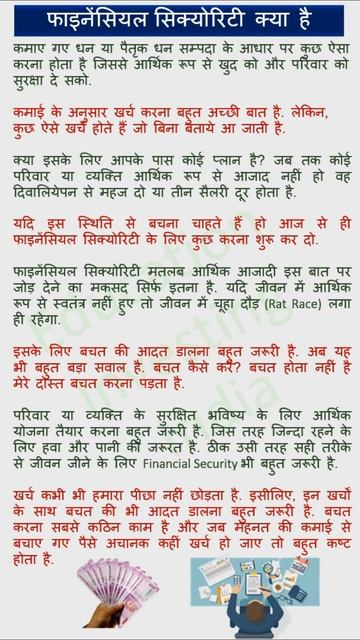 फाइनेंसियल सिक्योरिटी क्या है
कमाए गए धन या पैतृक धन सम्पदा के आधार पर कुछ ऐसा
करना होता है जिससे आर्थिक रूप से खुद को और परिवार को
सुरक्षा दे सको.
कमाई के अनुसार खर्च करना बहुत अच्छी बात है. लेकिन,
कुछ ऐसे खर्चे होते हैं जो बिना बताये आ जाती है.
क्या इसके लिए आपके पास कोई प्लान है? जब तक कोई
परिवार या व्यक्ति आर्थिक रूप से आजाद नहीं हो वह
दिवालियेपन से महज दो या तीन सैलरी दूर होता है.
यदि इस स्थिति से बचना चाहते हैं हो आज से ही
फाइनेंसियल सिक्योरिटी के लिए कुछ करना शुरू कर दो.
फाइनेंसियल सिक्योरिटी मतलब आर्थिक आजादी इस बात पर
जोड़ देने का मकसद सिर्फ इतना है. यदि जीवन में आर्थिक
रूप से स्वतंत्र नहीं हुए तो जीवन में चूहा दौड़ (Rat Race) लगा
ही रहेगा.
इसके लिए बचत की आदत डालना बहुत जरूरी है. अब यह
भी बहुत बड़ा सवाल है. बचत कैसे करें? बचत होता नहीं है
मेरे दोस्त बचत करना पड़ता है.
परिवार या व्यक्ति के सुरक्षित भविष्य के लिए आर्थिक
योजना तैयार करना बहुत जरूरी है. जिस तरह जिन्दा रहने के
लिए हवा और पानी की जरूरत है. ठीक उसी तरह सही तरीके
से जीवन जीने के लिए Financial Security भी बहुत जरूरी है.
खर्च कभी भी हमारा पीछा नहीं छोड़ता है. इसीलिए, इन खर्चों
के साथ बचत की भी आदत डालना बहुत जरूरी है. बचत
करना सबसे कठिन काम है और जब मेहनत की कमाई से
बचाए गए पैसे अचानक कहीं खर्च हो जाए तो बहुत कष्ट
होता है.
Education
Investing
India